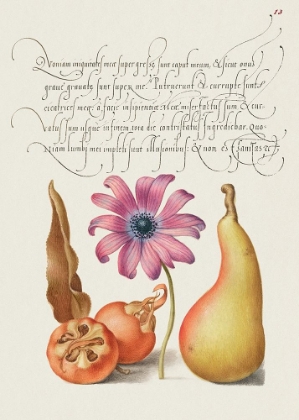 13
Quoniam iniquitates meę supergresę sunt caput meum, & sicut onus
graue grauatę sunt super me. Putruerunt & corruptę sunt
cicatrices meę, a facie insipientię meę. Miser factus sum & cur
uatus sum usque in finem, tota die contristatus ingrediebar. Quo
niam lumbi mei impleti sunt illusionibus: & non est sanitas